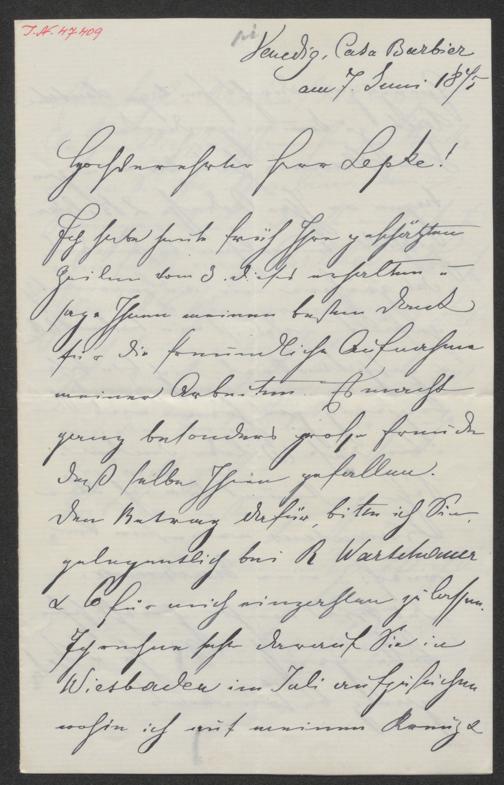 I.N. 47409
Venedig, Casa Barbier
am 7. Juni 18
Hochverehrter Herr Lepke!
Ich habe heute früh Ihre geschätzten
Zeilen vom 3. dieses erhalten u
sage Ihnen meinen besten Dank
für die freundliche Aufnahme
meiner Arbeiten. Es macht
ganz besonders große Freude
daß selbe Ihnen gefallen.
Den Betrag dafür, bitte ich Sie,
gelegentlich bei R Warschauer
& Co für mich einzahlen zu lassen.
Ich rechne sehr darauf Sie in
Wiesbaden im Juli aufzusuchen
wohin ich auf meinen Kreuz &